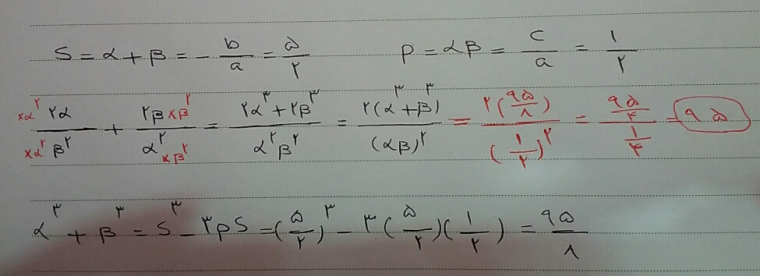 S = α + β = - b/a = ۵/۲    P = αβ = c/a = ۱/۲
(×α^۲ ۲α)/(×α^۲ β^۲) + (۲β ×β^۲)/(α^۲ ×β^۲) = (۲α^۳ + ۲β^۳)/(α^۲β^۲) = ۲(α^۳ + β^۳)/(αβ)^۲ = ۲(۹۵/۸)/(۱/۲)^۲ = (۹۵/۴)/(۱/۴) = ۹۵
α^۳ + β^۳ = S^۳ - ۳PS = (۵/۲)^۳ - ۳(۵/۲)(۱/۲) = ۹۵/۸